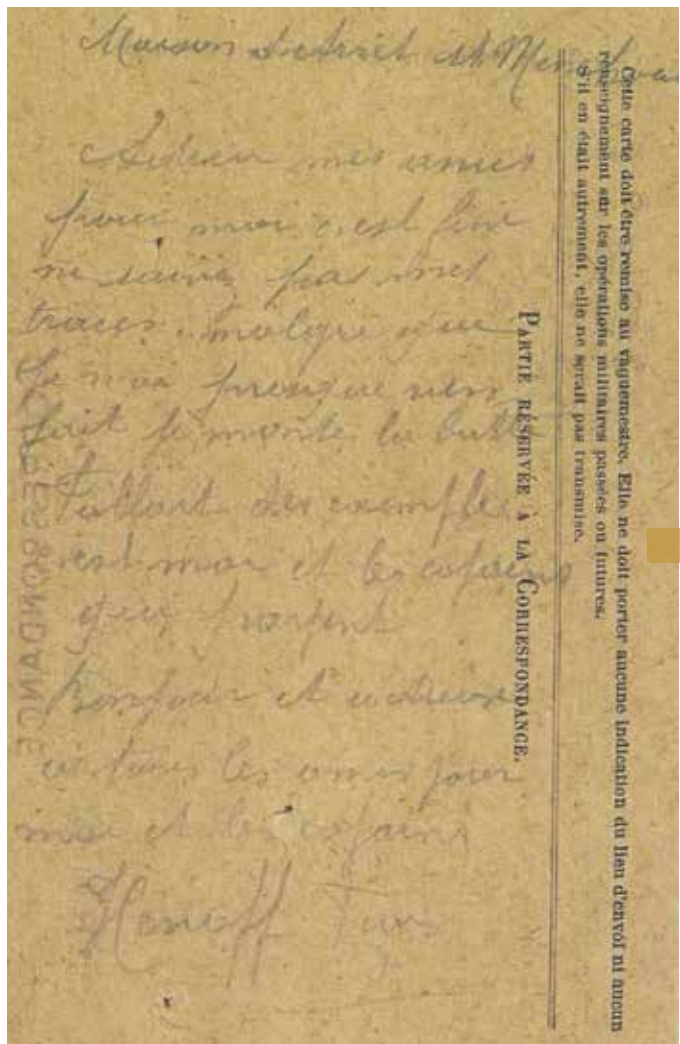 Maison d'arret St Men
Adieu mes amis
pour moi c'est fini
ne suivez pas mes
traces. malgré que
je n'ai presque rien
fait je monte la butte
Fallait des exemples
est moi et les copains
qui
Bonjour et adieux
a tous les amis pour
moi et les copains
Cette carte doit être remise au vaguemestre. Elle ne doit porter aucune indication du lieu d'envoi ni aucun
renseignement sur les opérations militaires passées ou futures.
S'il en était autrement, elle ne serait pas transmise.
PARTIE RÉSERVÉE À LA CORRESPONDANCE.
CORRESPONDANCE